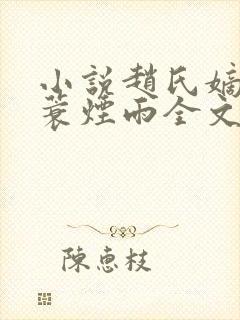 小說趙氏嫡
蓑煙雨全文
陳惠枝